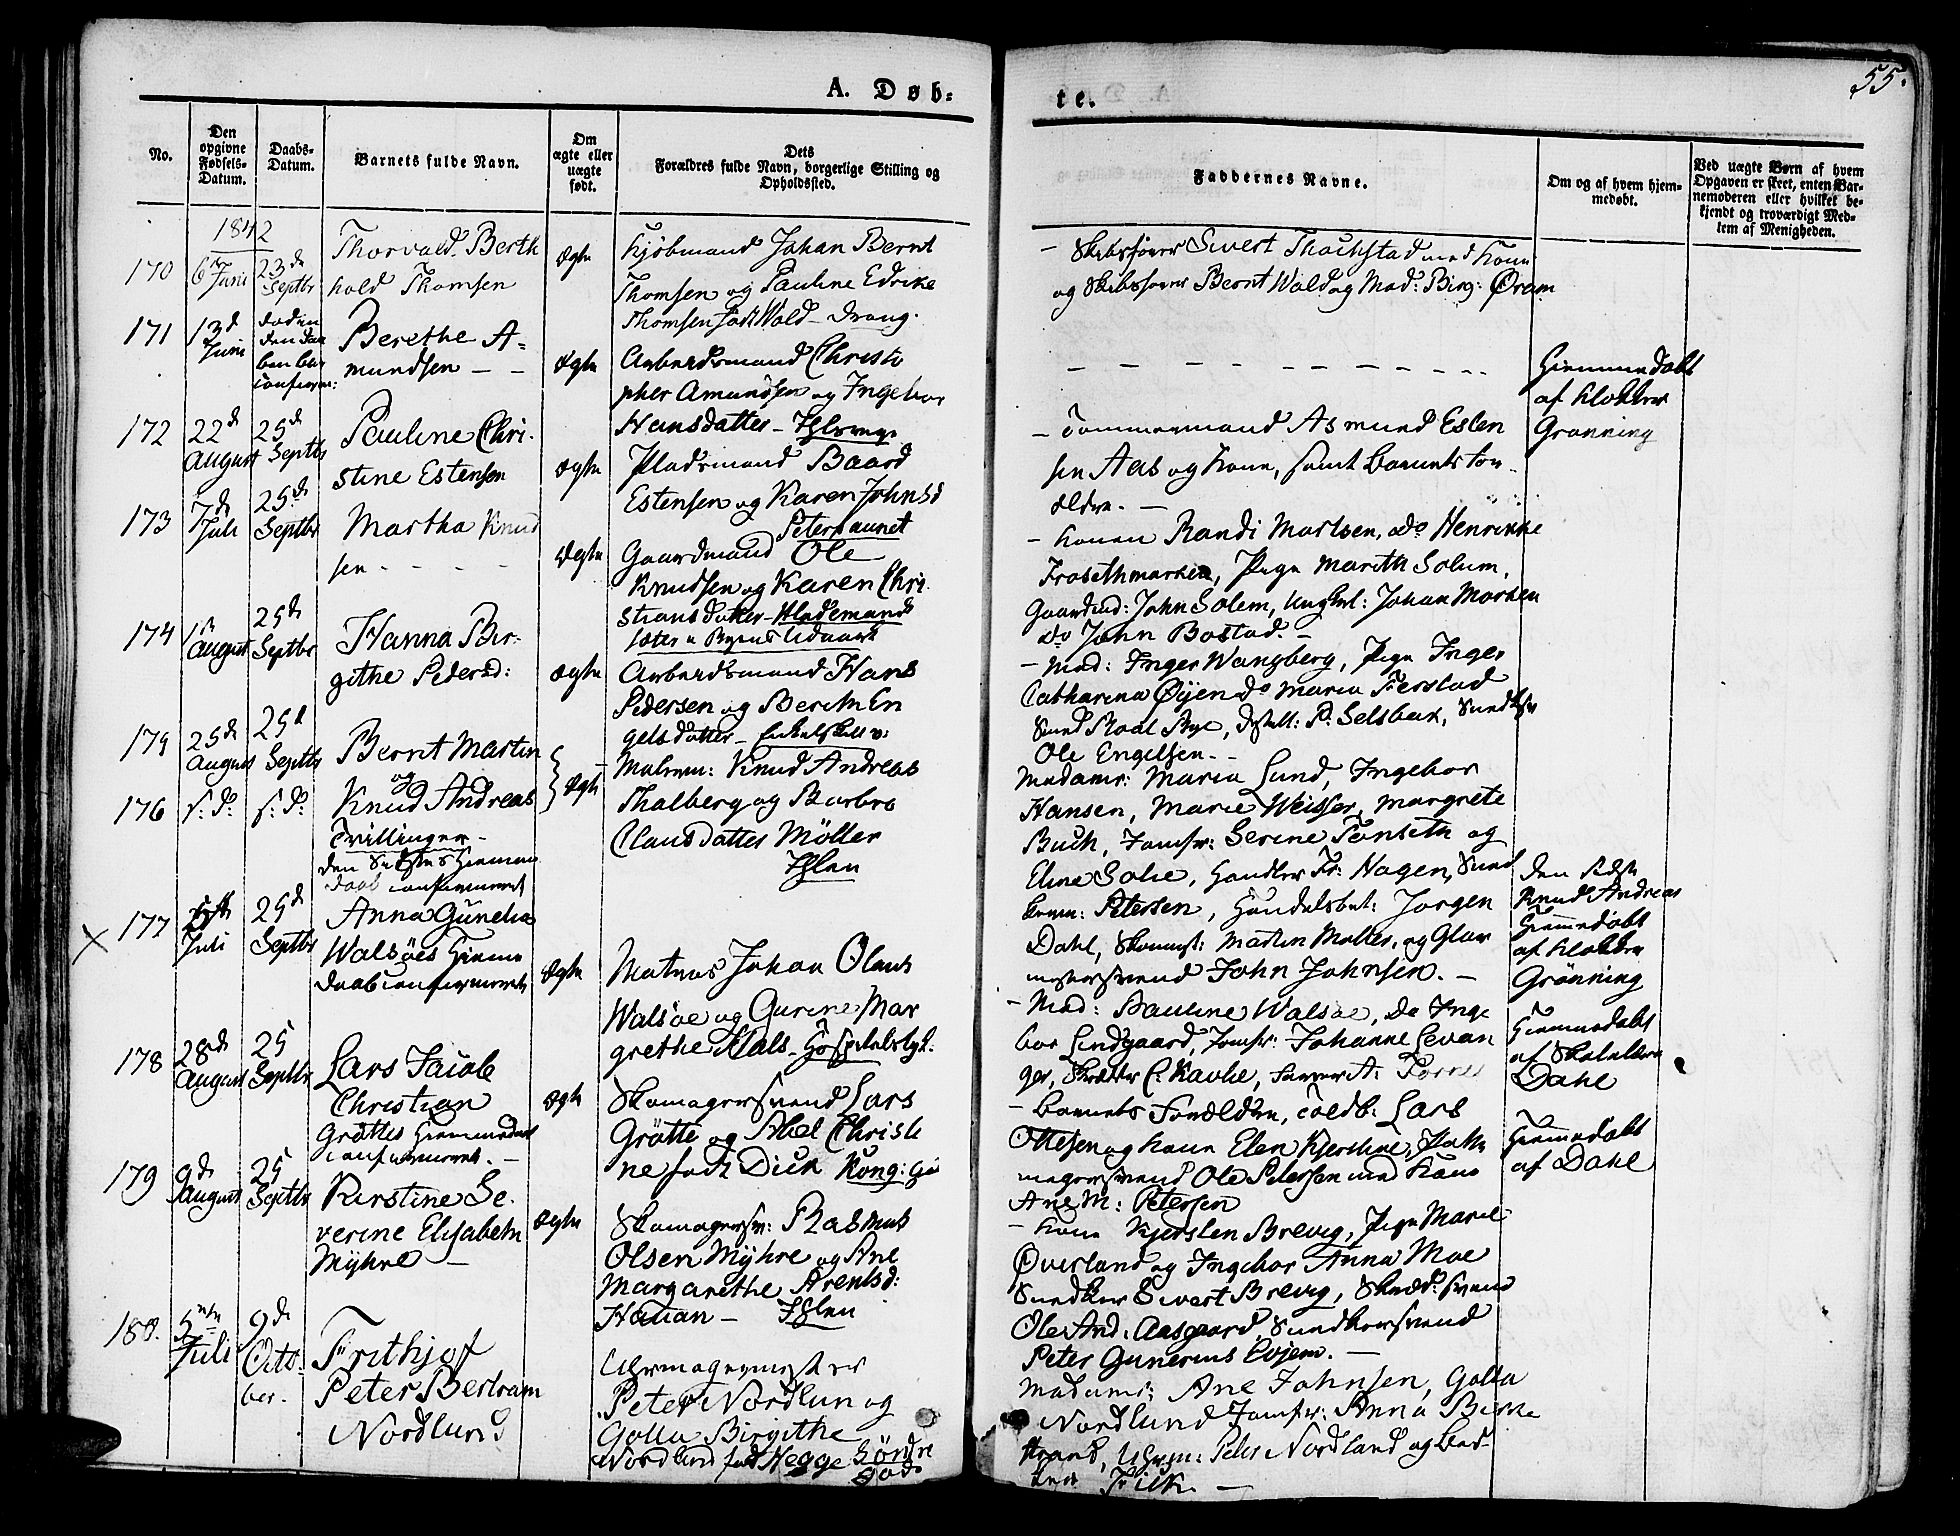 A. Døb-
te.
55.
No.
Den opgivne Fødsels-Datum.
Daabs-Datum.
Barnets fulde Navn.
Om ægte eller uægte født.
Dets Forældres fulde Navn, borgerlige Stilling og Opholdssted.
Faddernes Navne.
Om og af hvem hjemmedøbt.
Ved uægte Børn af hvem Opgaven er skeet, enten Barnemoderen eller hvilket bekjendt og troværdigt Medlem af Menigheden.
1842
170
6te Juni
23d Septbr
Thorvald Berth
hold Thomsen
ægte
Kjöbmand Johan Bernt
Thomsen og Pauline Edrike
Thomsen født Wald
- Skibsfører Sivert Thachstad med Kone
og Skibsfører Bernt Wald og Mad: Birg: Øram
171
13d Juni
Berethe A-
mundsen - -
ægte
Arbeidsmand Christo
pher Amundsen og Ingebor
Hansdatter - Ihleveg.
Hjemmedøbt
af Klokker
Grønning
172
22d August
25d Septbr
Pauline Chri-
stine Estensen
ægte
Pladsmand Baard
Estensen og Karen Johnsd
Petersaunet
- Tømmermand Asmund Esten
sen Aas og Kone, samt Barnets For-
ældre. -
173
7d Juli
25d Septbr
Martha Knud
sen - - - -
ægte
Gaardmand Ole
Knudsen og Karen Chri
stiansdatter - Hlademands
- Konen Randi Martsen, do Henrikke
Frosethmarken, Pige Marith Solum,
Gaardmd: John Solem, Ungkrl: Johan Morken
do John Bostad. -
174
1te August
25d Septbr
Hanna Bir-
githe Pedersd:
ægte
Arbeidsmand Hans
Pedersen og Bereth En
gelsdatter -
- Mad: Inger Wangberg, Pige Inger
Catharina Øÿen do Maria Ferstad
Ole Engelsen. -
175
25d August
25d Septbr
Bernt Martin
og
176
s: d:
s: d:
Knud Andreas
Tvillinger -
den Sidstes Hjemme
daab confirmeret
ægte
Malersv: Knud Andreas
Thalberg og Barbro
Clausdatter Möller
Ihlen
Madamr: Maria Lund, Ingebor
Hansen, Marie Weisser, Margrete
Buch, Jomfr: Serine Tønseth og
Eline Solie, Handler Fr: Hagen, Sned
kersv: Petersen, Handelsbet: Jørgen
Dahl, Skomst: Martin Möller, og Glar
mestersvend John Johnsen. -
Den sidste
Knud Andreas
Hjemmedøbt
af Klokker
Grönning
177
Juli
25d Septbr
Anna Gunelia
Walsöes Hjemme
daab confirmeret
ægte
Matros Johan Olaus
Walsöe og Gurine Mar
grethe Hals - Hospitalslyk.
- Mad: Pauline Walsöe, do Inge
bor Lindgaard, Jomfr: Johanne Levan
ger, Skrædder C: Kavlie,
Hjemmedøbt
af
Dahl
178
28d August
25 Septbr
Lars Jacob
Christian
Gröttes Hjemmedaab
confirmeret. -
ægte
Skomagersvend Lars
Grötte og Abel Christi
ne født Dick Kong: G:
- Barnets Forældre, Toldb: Lars
Ottesen og Kone Elen Kjerstine,
magersvend Ole Petersen med Kone
Ane M: Petersen
Hjemmedøbt
af Dahl
179
9d August
25 Septbr
Kirstine Se-
verine Elisabeth
Mÿhre -
ægte
Skomagersv: Rasmus
Olsen Mÿhre og Ane
Margarethe Arentsd:
Hauan - Ihlen
- Kone Kjersten Brevig, Pige Marie
Øverland og Ingebor Anna Moe
Snedker Sivert Brevig, Skræd: svend
Ole And: Aasgaard, Snedkersvend
Peter Gunerius Evjem. -
180.
5te Juli
9d Octo-
ber.
Frithjof
Peter Bertram
Nordlund
Uhrmagermester
Peter Nordlun og
Golla Birgithe
Nordlund født Hegge Söndre
Gade
Madame: Ane Johnsen, Golla
Nordlund Jomfr: Anna Birke
strand, Uhrm: Peter Nordland og
Filk. -